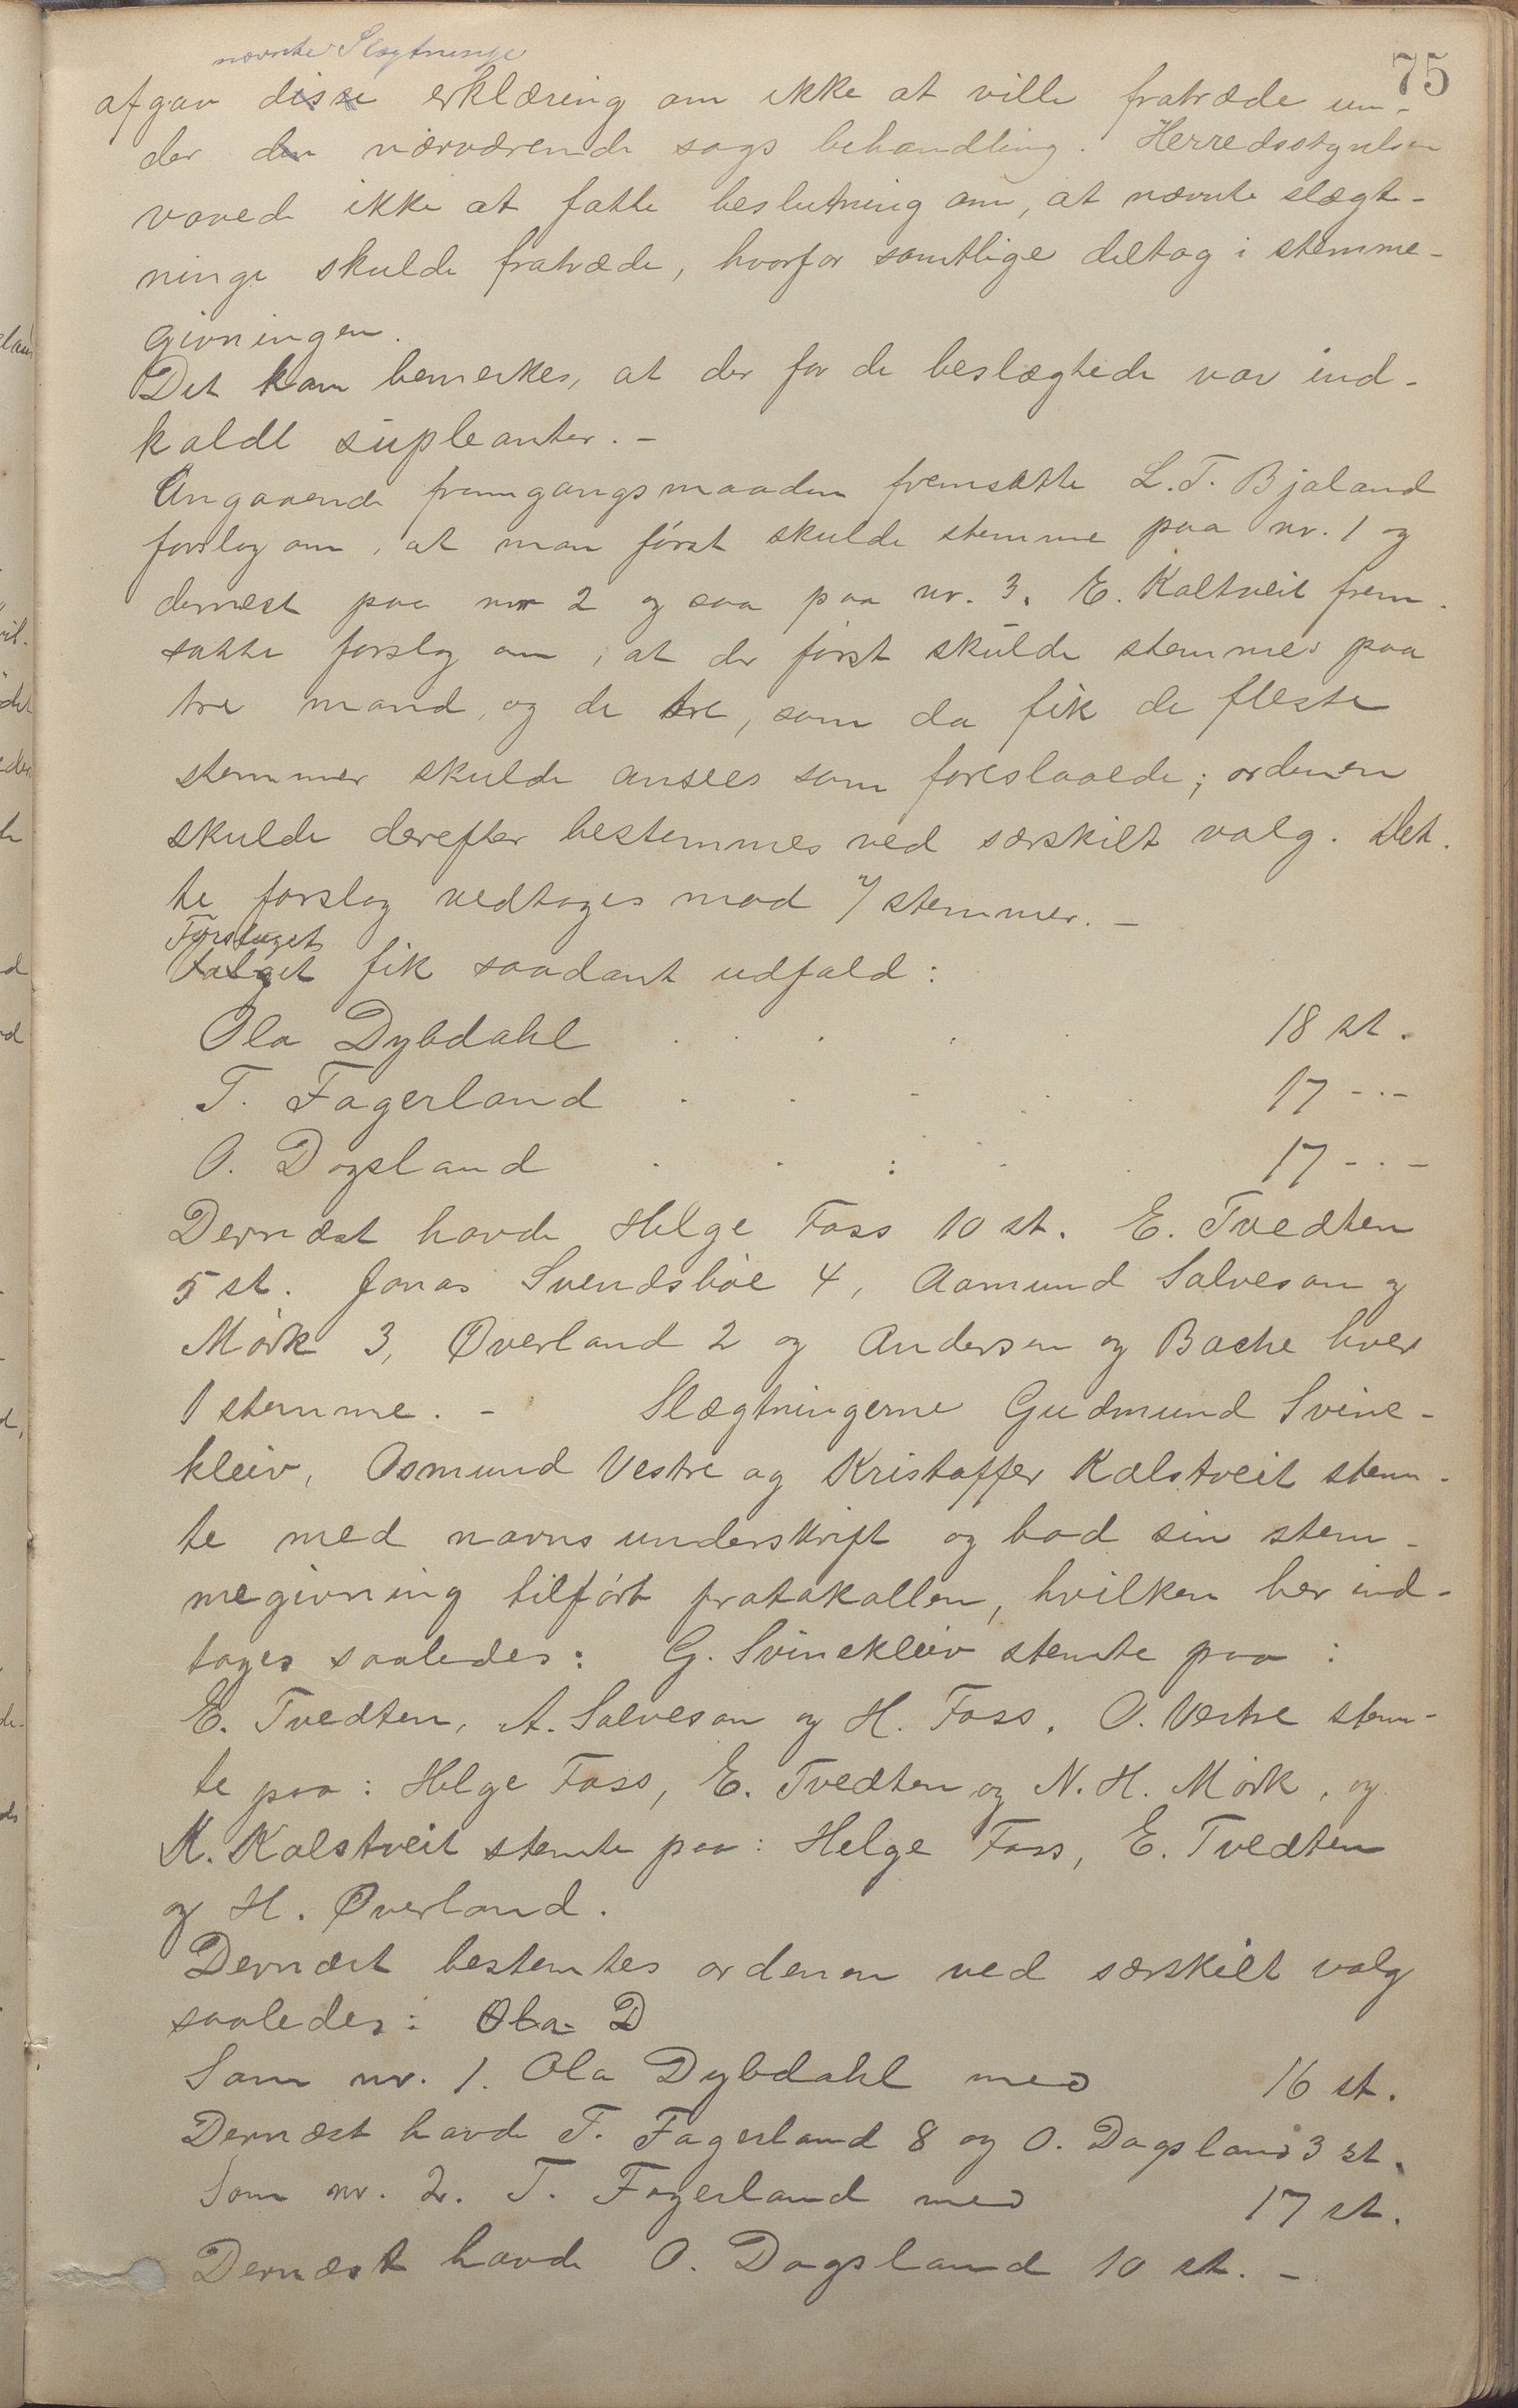 75
nævnte Slægtninge
afgav disse erklæring om ikke at ville fratræde un-
der den nærværende sags behandling. Herredsstyrelsen
vovede ikke at fatte beslutning om, at nævnte slægt-
ninge skulde fratræde, hvorfor samtlige deltog i stemme-
givningen.
Det kan bemerkes, at der for de beslægtede var ind-
kaldt supleanter. -
Angaaende fremgangsmaaden fremsatte L. T. Bjaland
forslag om, at man først skulde stemme paa nr. 1 og
dernest paa nr 2 og saa paa nr. 3. E. Kaltveit frem-
satte forslag om, at der først skulde stemmes paa
tre mand, og de tre, som da fik de fleste
stemmer skulde ansees som foreslaaede; ordenen
skulde derefter bestemmes ved særskilt valg. Det-
te forslag vedtoges mod 7 stemmer. -
Forslaget
Valget fik saadant udfald:
Ola Dybdahl . . . . 18 st.
T. Fagerland . . - . . 17 -.-
O. Dagsland . . : . . 17 -.-
Dernæst havde Helge Foss 10 st. E. Tvedten
5 st. Jonas Svendsböe 4, Aamund Salveson og
Mörk 3, Øverland 2 og Andersen og Bache hver
1 stemme. - Slægtningerne Gudmund Svine-
kleiv, Osmund Vestre og Kristoffer Kalstveit stem-
te med navns underskrift og bad sin stem-
megivning tilført protokollen, hvilken her ind-
tages saaledes: G. Svinekleiv stemte paa :
E. Tvedten, A. Salveson og H. Foss. O. Vestre stem-
te paa: Helge Foss, E. Tvedten og N. H. Mörk, og
K. Kalstveit stemte paa: Helge Foss, E. Tvedten
og H. Øverland.
Dernæst bestemtes ordenen ved særskilt valg
saaledes: Ola D
Som nr. 1. Ola Dybdahl med 16 st.
Dernæst havde T. Fagerland 8 og O. Dagsland 3 st.
Som nr. 2. T. Fagerland med 17 st.
Dernæst havde O. Dagsland 10 st. -